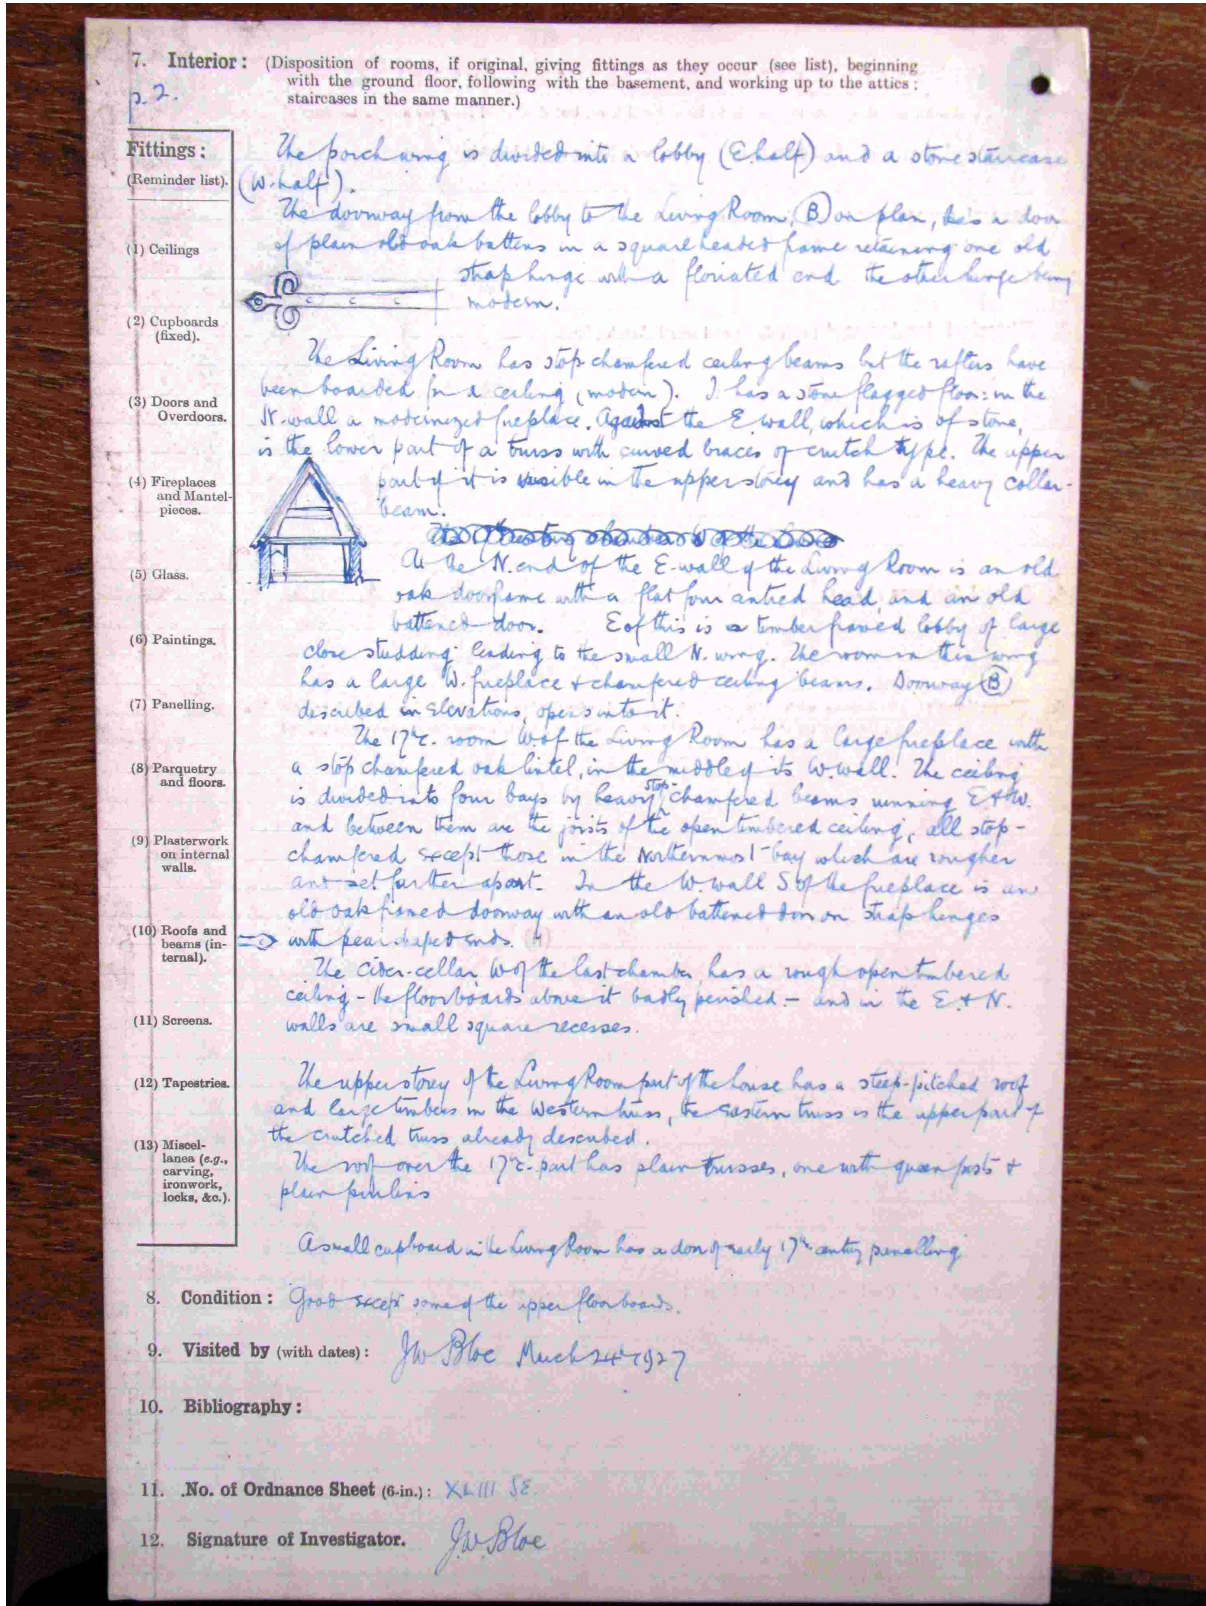 7. Interior: (Disposition of rooms, if original, giving fittings as they occur (see list), beginning
with the ground floor, following with the basement, and working up to the attics:
staircases in the same manner.)
p. 2.
Fittings:
(Reminder list).
(1) Ceilings
(2) Cupboards
(fixed).
(3) Doors and
Overdoors.
(4) Fireplaces
and Mantel-
pieces.
(5) Glass.
(6) Paintings.
(7) Panelling.
(8) Parquetry
and floors.
(9) Plasterwork
on internal
walls.
(10) Roofs and
beams (in-
ternal).
(11) Screens.
(12) Tapestries.
(13) Miscel-
lanea (e.g.,
carving,
ironwork,
locks, &c.).
The porch wing is divided into a lobby (E. half) and a stone staircase
(W. half).
The doorway from the lobby to the Living Room, (B) on plan, has a door
of plain old oak battens in a square headed frame retaining one old
strap hinge with a floriated end the other hinge being
modern.
The Living Room has stop chamfered ceiling beams but the rafters have
been boarded for a ceiling (modern). I has a stone flagged floor: in the
N. wall a modernized fireplace. Against the E. wall, which is of stone,
is the lower part of a truss with curved braces of crutch type. The upper
part of it is visible in the upper storey and has a heavy collar-
beam.
At the N. end of the E. wall of the Living Room is an old
oak doorframe with a flat four centred head and an old
battened door. E of this is a timber framed lobby of large
close studding leading to the small N. wing. The room in this wing
has a large W. fireplace & chamfered ceiling beams. Doorway (B)
described in Elevations, opens into it.
The 17th c. room W. of the Living Room has a large fireplace with
a stop chamfered oak lintel, in the middle of its W. wall. The ceiling
is divided into four bays by heavy stop-chamfered beams running E & W.
and between them are the joists of the open timbered ceiling, all stop-
chamfered except those in the Northernmost bay which are rougher
and set further apart. In the W. wall S of the fireplace is an
old oak framed doorway with an old battened door on strap hinges
with pear shaped ends. (H)
The Cider-cellar W of the last chamber has a rough open timbered
ceiling - the floorboards above it badly perished - and in the E. & N.
walls are small square recesses.
The upper storey of the Living Room part of the house has a steep-pitched roof
and large timbers in the Western truss, the Eastern truss is the upper part of
the crutched truss already described.
The roof over the 17th c. part has plain trusses, one with queen posts &
plain purlins
A small cupboard in the Living Room has a door of early 17th century panelling
8. Condition: Good except some of the upper floorboards.
9. Visited by (with dates): J W Bloe March 24th 1927
10. Bibliography:
11. No. of Ordnance Sheet (6-in.): XLIII SE.
12. Signature of Investigator. J. W. Bloe